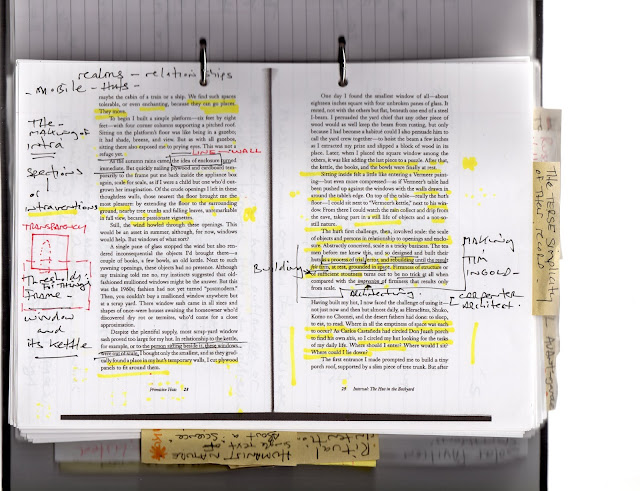 realms - relationships
- mobile - huts -
maybe the cabin of a train or a ship. We find such spaces
tolerable, or even enchanting, because they can go places.
They move.
To begin I built a simple platform—six feet by eight
feet—with four corner columns supporting a pitched roof.
Sitting on the platform's floor was like being in a gazebo;
it had shade, breeze, and view. But as with all gazebos,
sitting there also exposed me to prying eyes. This was not a
refuge yet.
LINE - WALL
As the autumn rains came, the idea of enclosure turned
immediate. But quickly nailing plywood and newsprint tem-
porarily to the frame put me back inside the appliance box
again, scale for scale, as if I were a child but one who'd out-
grown her imagination. Of the crude openings I left in these
thoughtless walls, those nearest the floor brought me the
most pleasure: by extending the floor to the surrounding
ground, nearby tree trunks and falling leaves, unremarkable
in full view, became passionate vignettes.
Still, the wind howled through these openings. This
would be an asset in summer, although, for now, windows
would help. But windows of what sort?
A single pane of glass stopped the wind but also ren-
dered inconsequential the objects I'd brought there—a
couple of books, a few bowls, an old kettle. Next to such
yawning openings, these objects had no presence. Although
nothing my yard told me no, my instincts suggested that old-
fashioned mullioned windows might be the answer. But this
was the 1980s; fashion had not yet turned "postmodern."
Then, you couldn't buy a mullioned window anywhere but
in a scrap yard. There window sash came in all sizes and
shapes of once-were houses awaiting the homeowner who'd
discovered dry rot or termites, who'd come for a close
approximation.
Despite the plentiful supply, most scrap-yard window
sash proved too large for my hut. In relationship to the kettle,
for example, or to the person sitting beside it, these windows
were out of scale. I bought only the smallest, and as they grad-
ually found a place in my hut's temporary walls, I cut plywood
panels to fit around them.
Primitive Huts 28
The
making of
intra
spections
or
intraventions
TRANSPARENCY
Threshold
for things
Frame -
window
and
its kettle
One day I found the smallest window of all—about
eighteen inches square with four unbroken panes of glass. It
rested, not with the others but flat, beneath one end of a steel
I-beam. I persuaded the yard chief that any other piece of
wood would as well keep the beam from rusting, but only
because I had become a habitué could I also persuade him to
call the yard crew together—to hoist the beam a few inches
as I extracted my prize and slipped a block of wood in its
place. Later, when I placed the square window among the
others, it was like adding the last piece to a puzzle. After that,
the kettle, the books, and the bowls were finally at rest.
Sitting inside felt a little like entering a Vermeer paint-
ing—but even more compressed—as if Vermeer's table had
been pushed up against the windows with the walls drawn in
around the table's edge. On top of the table—really the hut's
floor—I could sit next to "Vermeer's kettle," next to his win-
dow. From there I could watch the rain collect and drip from
the eave, taking part in a still life of objects and a not-so-
still nature.
The hut's first challenge, then, involved scale: the scale
of objects and persons in relationship to openings and enclo-
sure. Abstractly conceived, scale is a tricky business. The tea
men before me knew this, and so designed and built their
huts as a process of trial, error, and rebuilding until the result
was firm, at rest, grounded in space. Firmness of structure or
of sufficient stoutness turns out to be no trick at all when
compared with the expansion of firmness that results only
from scale.
Architecting
Having built my hut, I now faced the challenge of using it—
not just now and then but almost daily, as Heraclitus, Shuko,
Kamo no Chomei, and the desert fathers had done: to sleep,
to eat, to read. Where in all the emptiness of space was each
to occur? As Carlos Castañeda had circled Don Juan's porch
to find his own sitio, so I circled my hut looking for the tasks
of my daily life. Where should I enter? Where would I sit?
Where could I lie down?
The first entrance I made prompted me to build a tiny
porch roof, supported by a slim piece of tree trunk. But after
29 Journal: The Hut in the Backyard
Building
MAKING
TIM
INGOLD -
carpenter
architect.
The TERSE Simplicity
of
Ritual
HUMANIST NATURE
about a 'science'